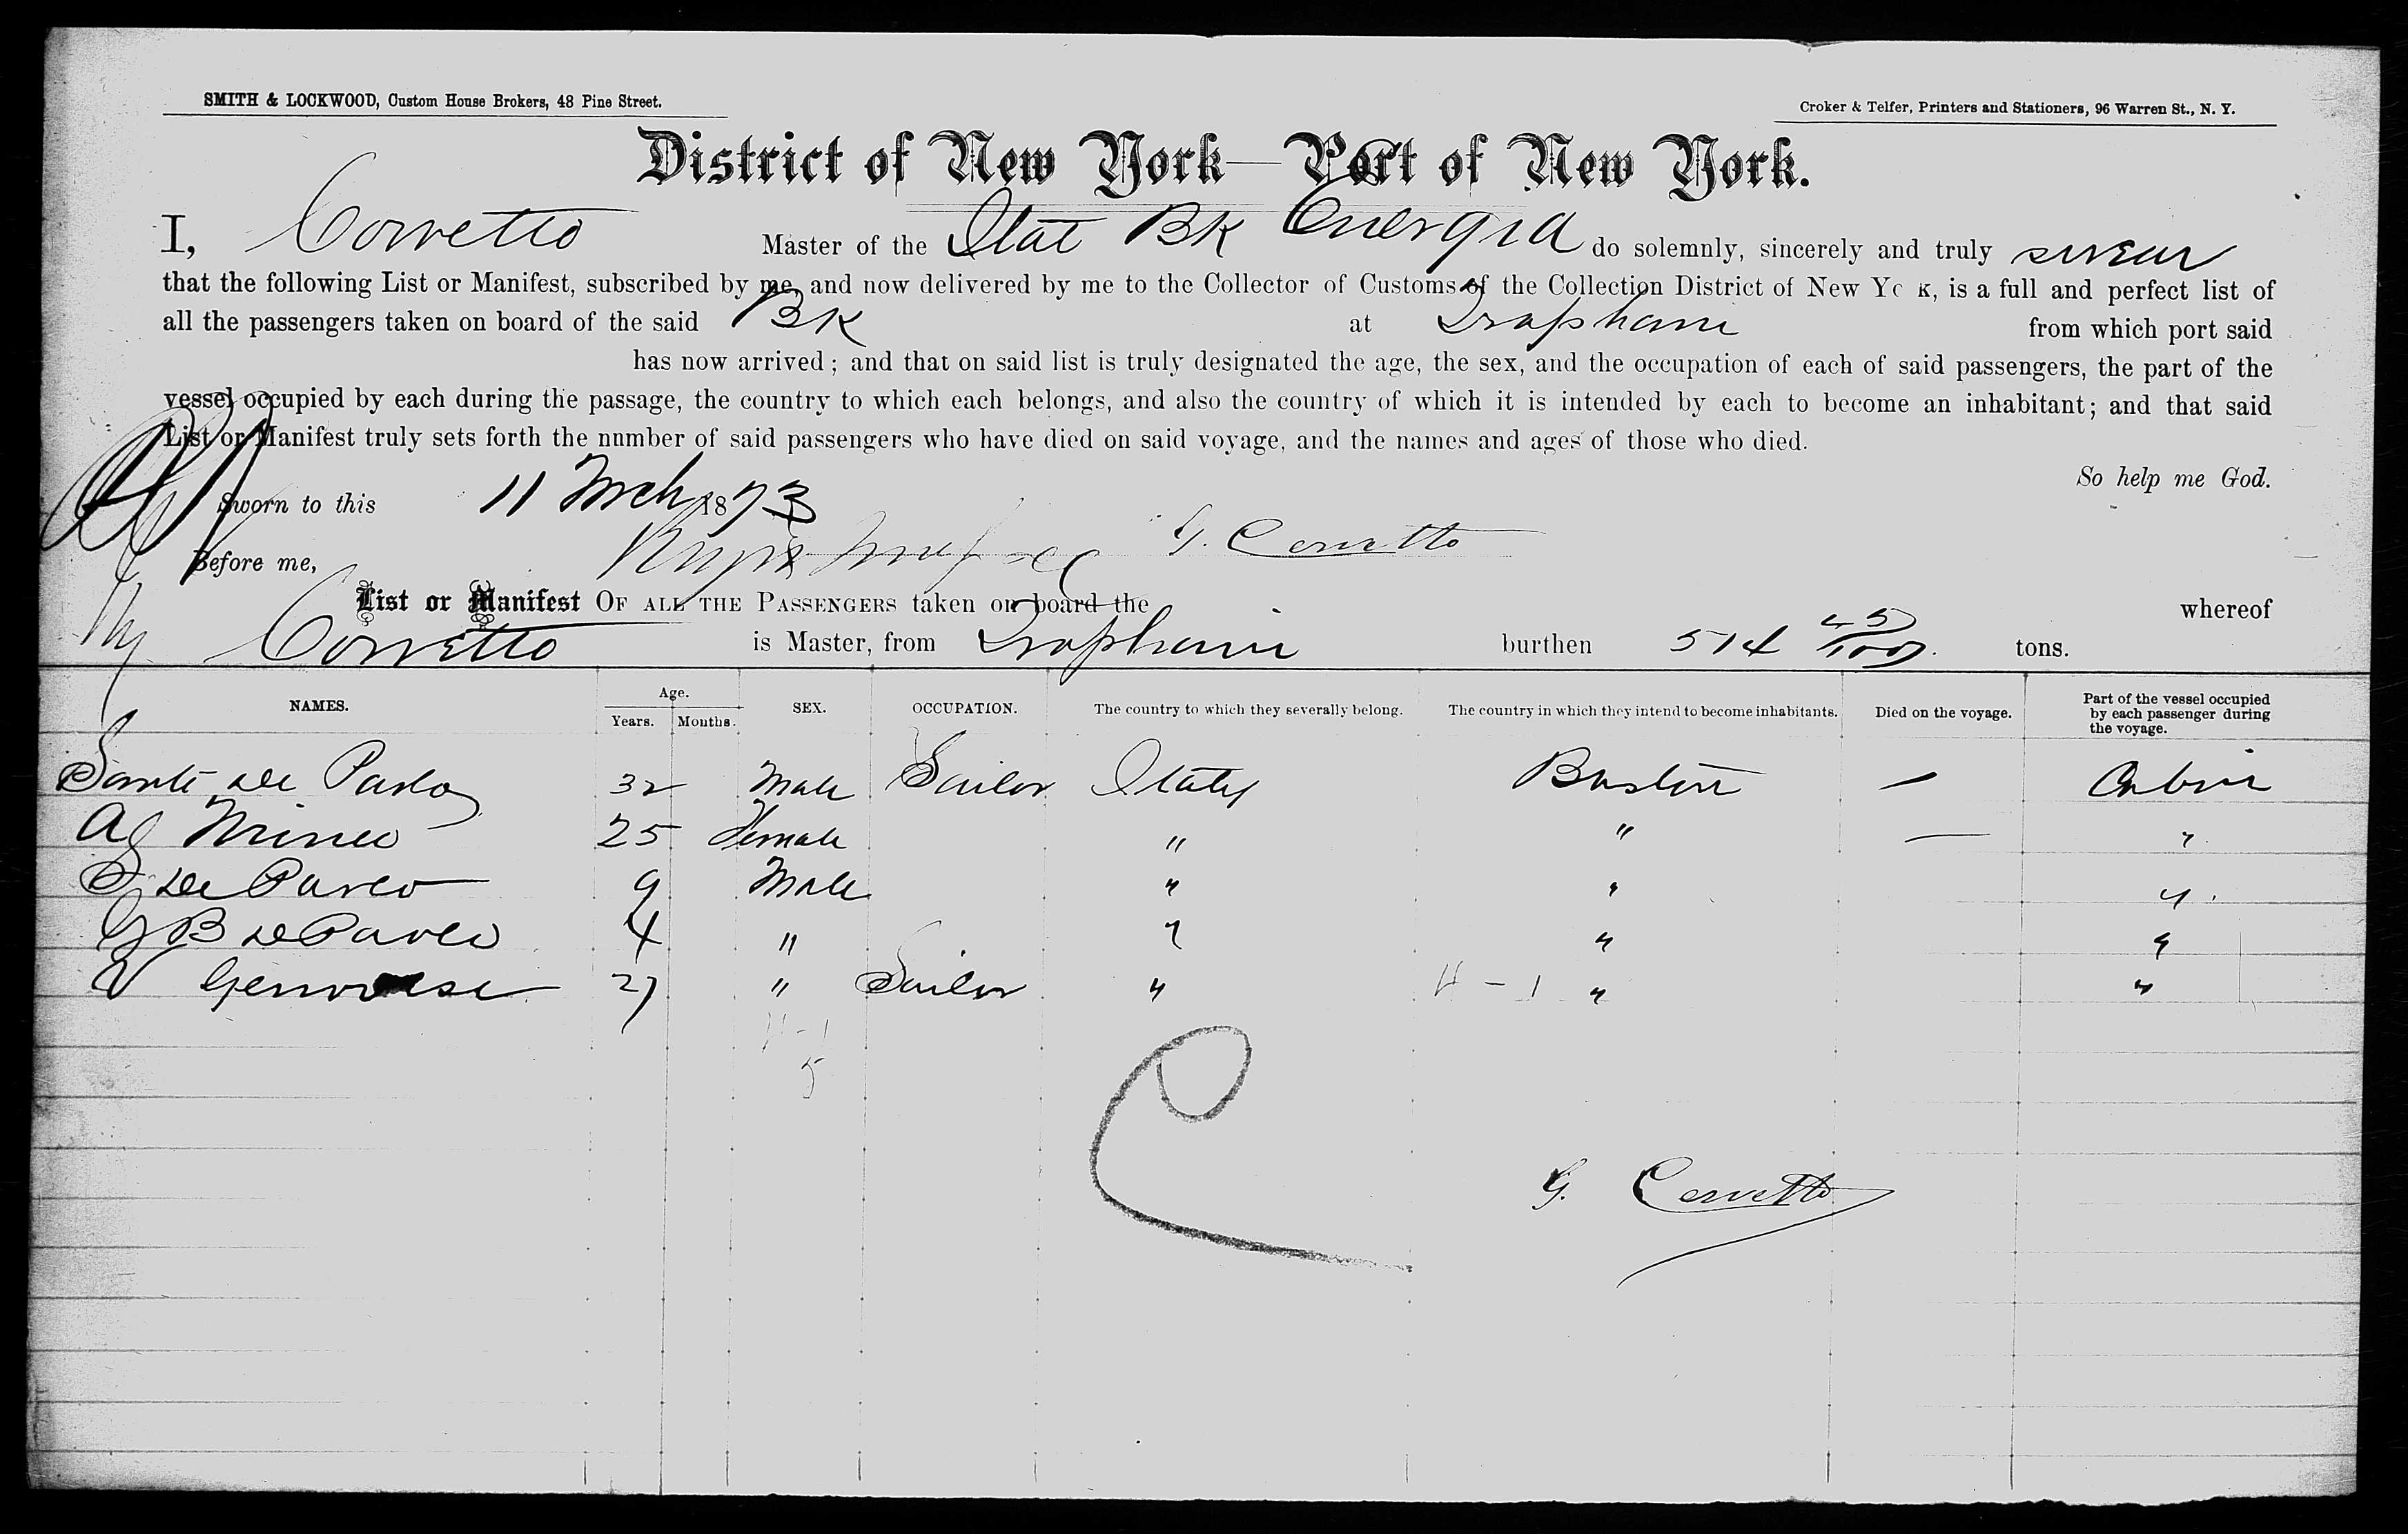 SMITH & LOCKWOOD, Custom House Brokers, 48 Pine Street.
Croker & Telfer, Printers and Stationers, 96 Warren St., N. Y.
District of New York—Port of New York.
I, Corvetto Master of the Ital Bk Energia do solemnly, sincerely and truly swear
that the following List or Manifest, subscribed by me, and now delivered by me to the Collector of Customs of the Collection District of New Yo K, is a full and perfect list of
all the passengers taken on board of the said BK at Traphani from which port said
has now arrived; and that on said list is truly designated the age, the sex, and the occupation of each of said passengers, the part of the
vessel occupied by each during the passage, the country to which each belongs, and also the country of which it is intended by each to become an inhabitant; and that said
List or Manifest truly sets forth the number of said passengers who have died on said voyage, and the names and ages of those who died.
So help me God.
Sworn to this 11 Mch 1873
Before me, G. Cervetto
List or Manifest OF ALL THE PASSENGERS taken on board the whereof
Corvetto is Master, from Traphani burthen 514 45/100 tons.
NAMES. Age. Years. Months. SEX. OCCUPATION. The country to which they severally belong. The country in which they intend to become inhabitants. Died on the voyage. Part of the vessel occupied by each passenger during the voyage.
Sante De Parlo 32 Male Sailor Italy Boston — Cabin
Ag Mineo 25 Female " " — "
S De Parlo 9 Male " " "
G B De Parlo 4 " " " "
V Genovese 27 " Sailor " 4 - 1 " "
4 - 1
5
G. Cervetto